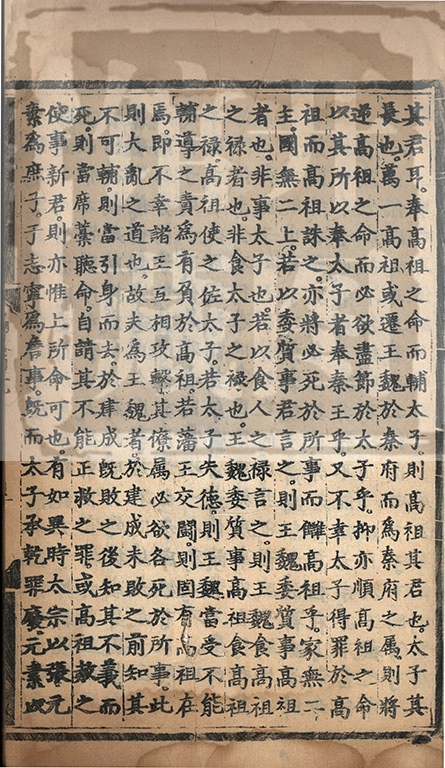 其君耳。奉高祖之命而輔太子。則高祖其君也。太子其
長也。萬一高祖或遷王魏於秦府而爲秦府之屬。則將
逆高祖之命而必欲盡節於太子乎。抑亦順高祖之命
以其所以奉太子者奉秦王乎。又不幸太子得罪於高
祖而高祖誅之。亦將必死於所事而讎高祖乎。家無二
主。國無二上。若以委質事君言之。則王魏委質事高祖
者也。非事太子也。若以食人之祿言之。則王魏食高祖
之祿者也。非食太子之祿也。王魏委質事高祖食高祖
之祿。高祖使之佐太子。若太子失德。則王魏當受不能
輔導之責。爲有負於高祖。若藩王交鬪。則固有高祖在
焉。即不幸諸王互相攻擊。其僚屬必欲各死於所事。此
則大亂之道也。故夫爲王魏者。於建成未敗之前知其
不可輔。則當引身而去。於建成旣敗之後知其不義而
死。則當席藁聽命。自請其不能正救之罪。或高祖赦之
使事新君。則亦惟上所命可也。有如異時太宗以張元
素爲庶子。于志寧爲詹事。旣而太子承乾罪廢。元素以